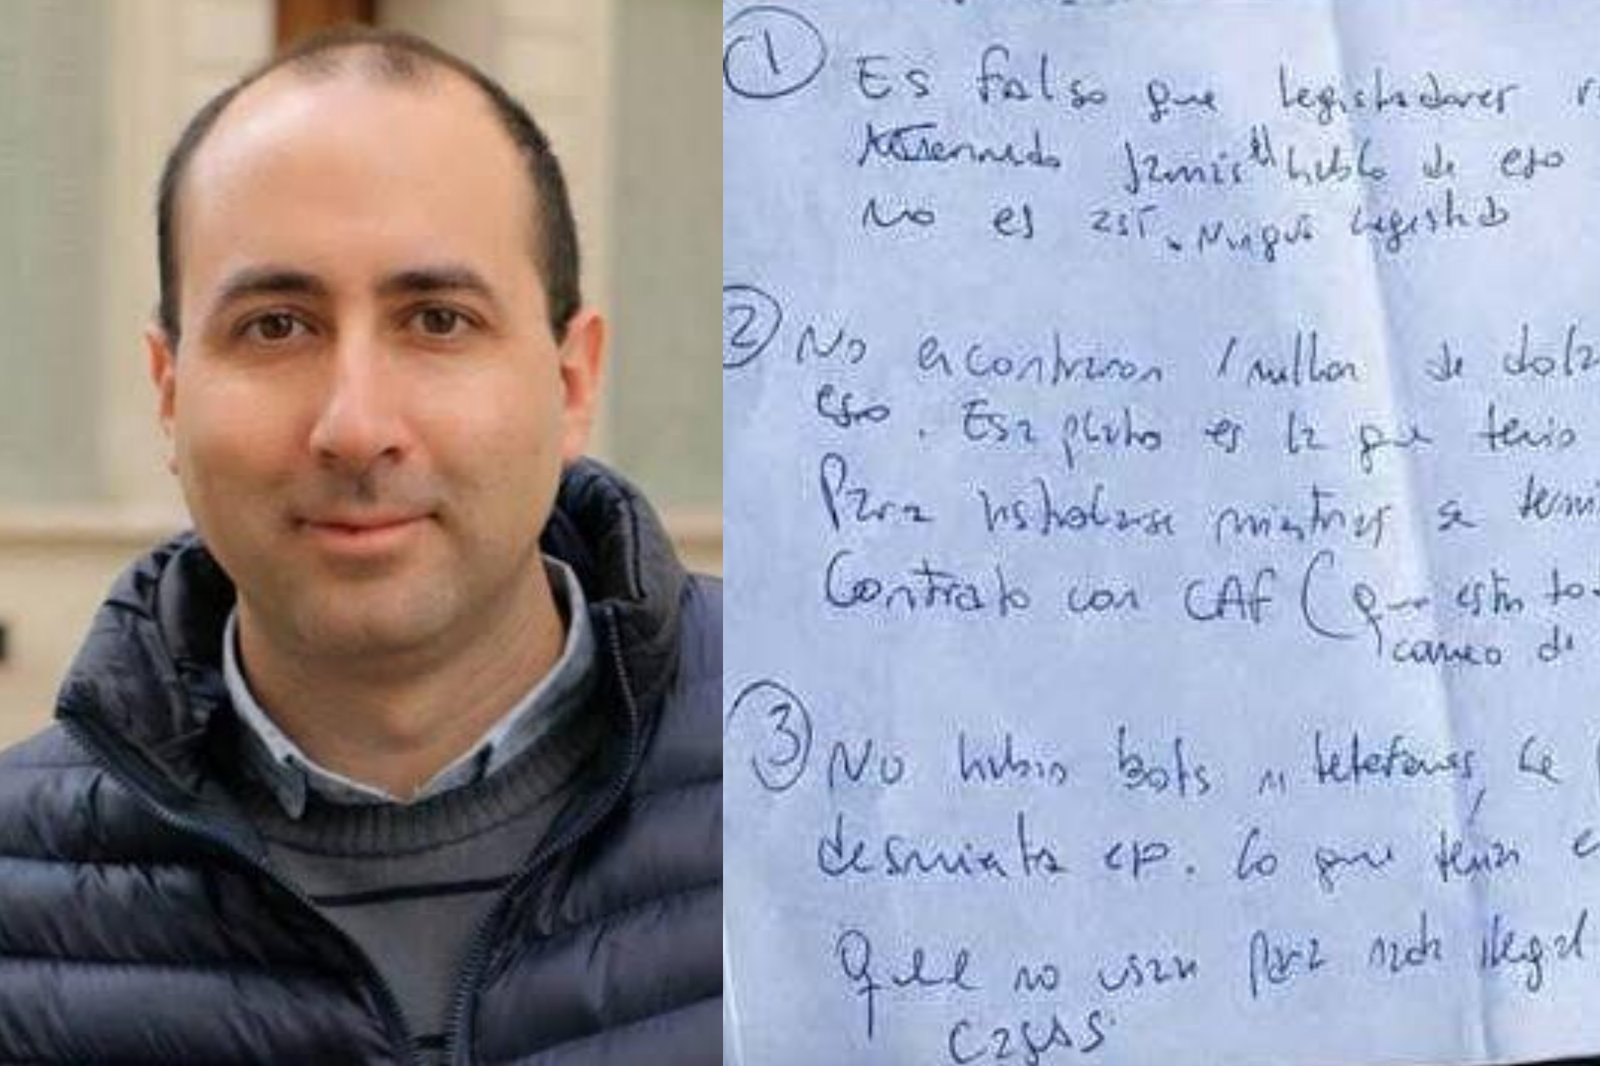 1 Es falso que legisladores
jamás él hablo de eso
No es así. Ningú legislad
2 No encontraron 1 millon de dola
eso. Esa plata es la que tenia
Para instalarse mientras se termi
Contrato con CAF (que esta to
correo de
3 No habia bots ni telefones, se
desmienta ep. Lo que tenian
Que no usan para nada ilegal
casas.